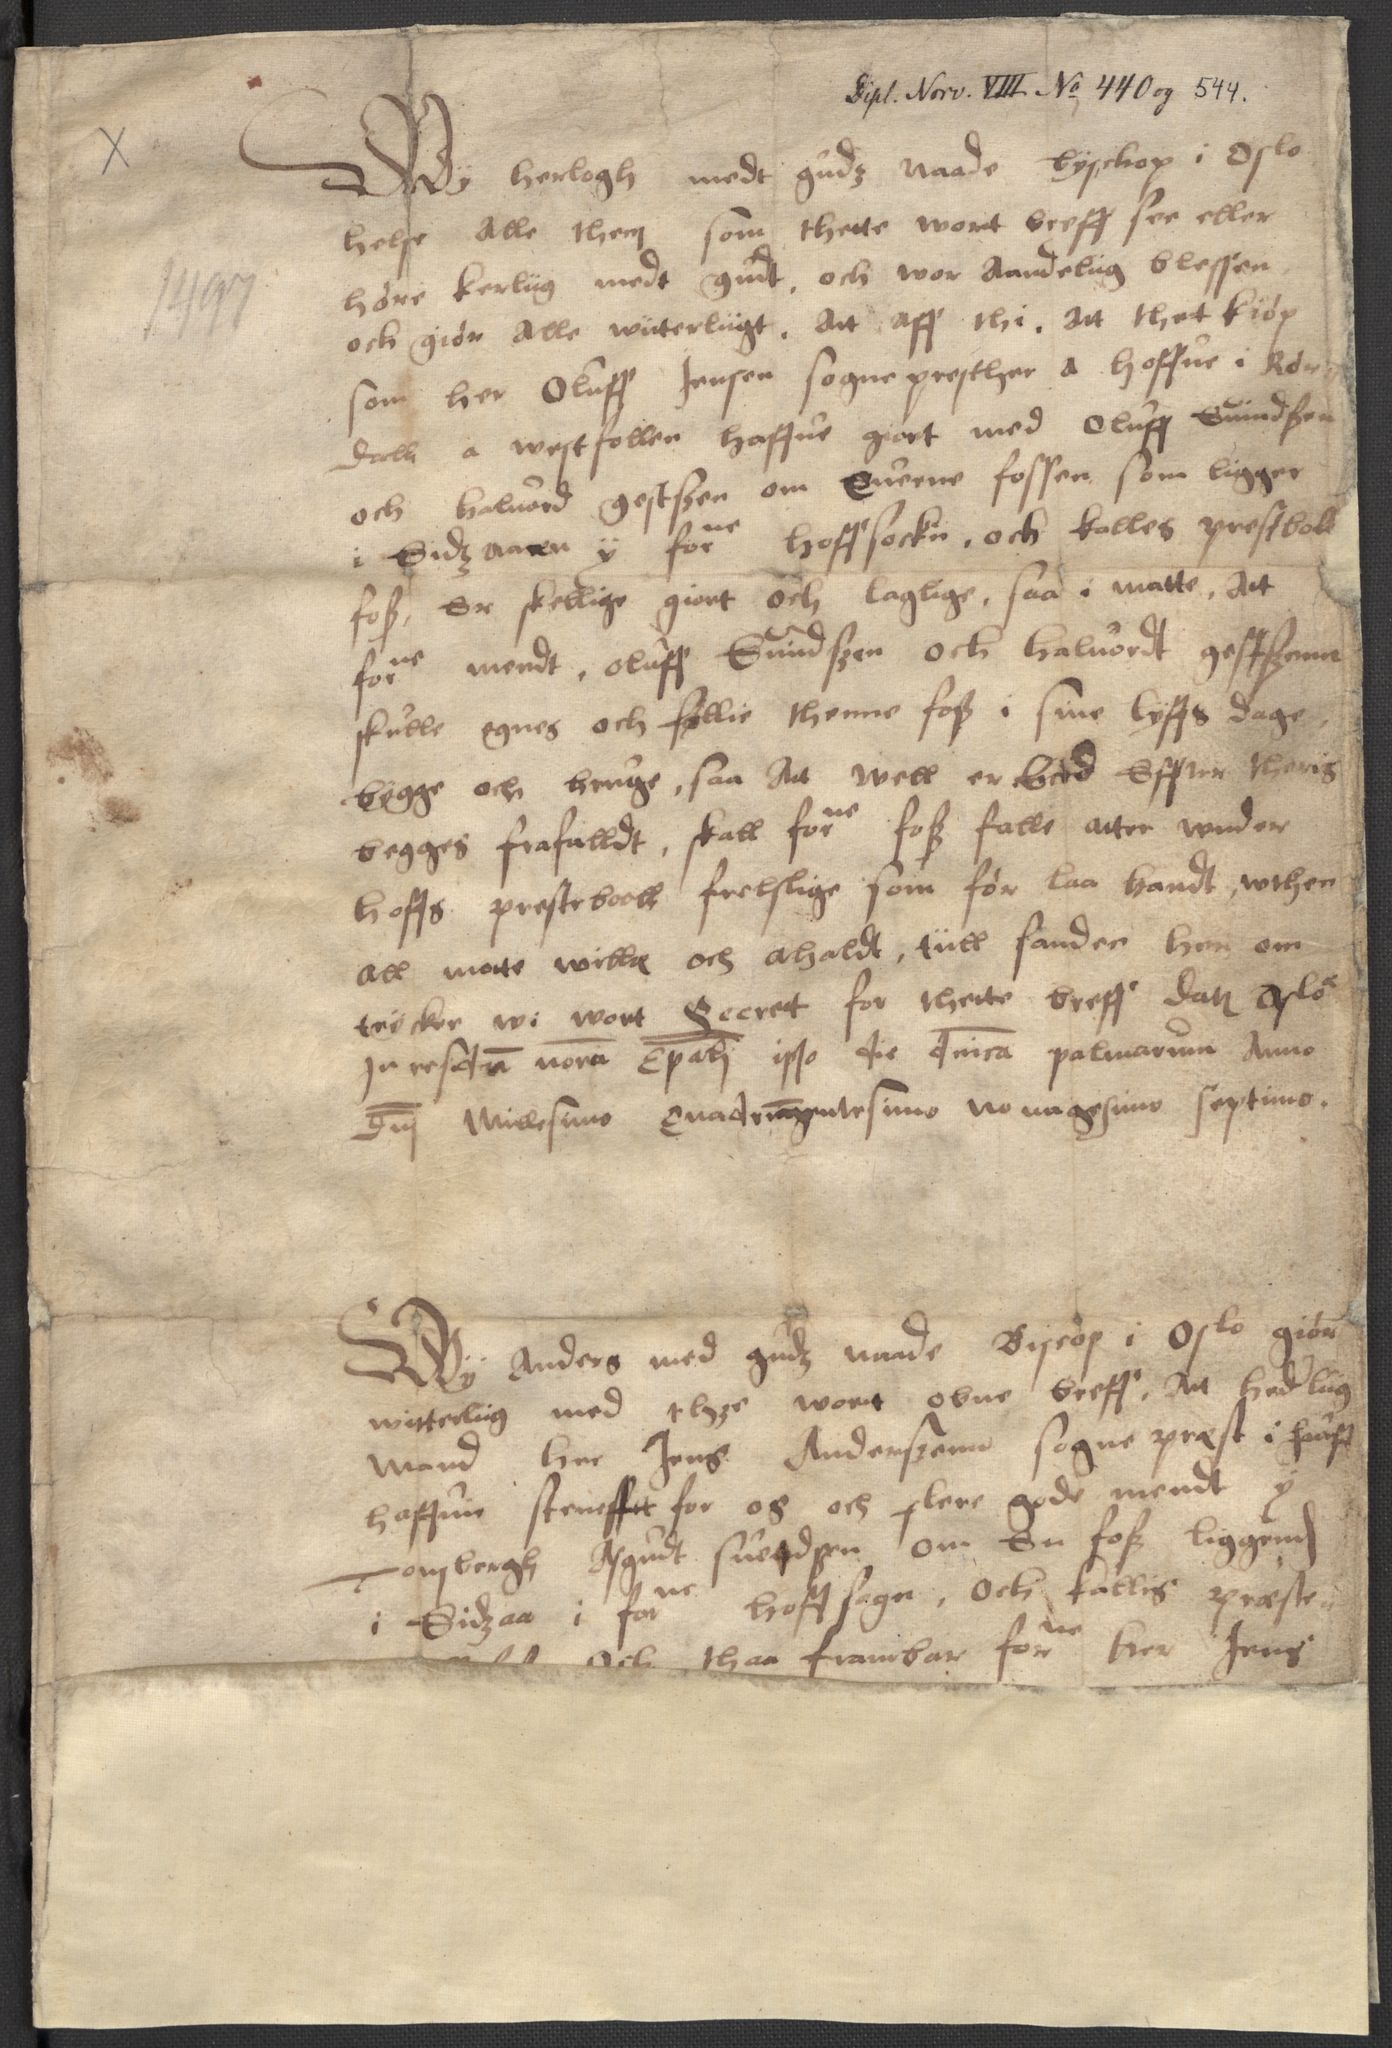 Dipl. Norv. VIII. No 440 og 544.
X
1497
Wy herlogh medt gudz naade byschop i Oslo
helse Alle them som thette wort breff see eller
høre kerlug medt gudt, och wor Aandelug blessen
och giør Alle witterlugt. At aff thi. At thet kiøp
som her Oluff Jensen sognepresther a hoffue i Rør
dall a westfollen haffue giort med Oluff Suindszen
och haluord gestszen om Querne fossen som ligger
i Sidz aaen y forne hoffsockn, och kalles prestboll
fosz, Er skellige giort och laglige, saa i matte, At
forne mendt, oluff Suindszen och haluordt gestszenn
skulle egnes och føllie thenne fosz i sine lyffs dage,
bygge och bruge, saa At well er Effter theris
begges frafalldt, skall forne fosz falle atter wnder
hoffs presteboell frelslige som før laa handt, wthen
all motte willa och ahaldt, tiill sanden her om
trycker wi wort Secret for thette breff Datz Oslo
In nora Epali ipso die dnica palmarum Anno
Dnj Millesimo Quadringentesimo nonagesimo septimo.
Wy Anders med gudz naade Biscop i Oslo giør
witterlug med thze wort obne breff, At hederlug
mand her Jens Anderszenn sogne præst i
haffuer steueffnt for os och flere gode mendt y
Tonsbergh Asgudt suendsen om En fosz liggend
i Sidzaa i forne hoff sogn, Och kallis præste
Och thaa frambar forne her Jens